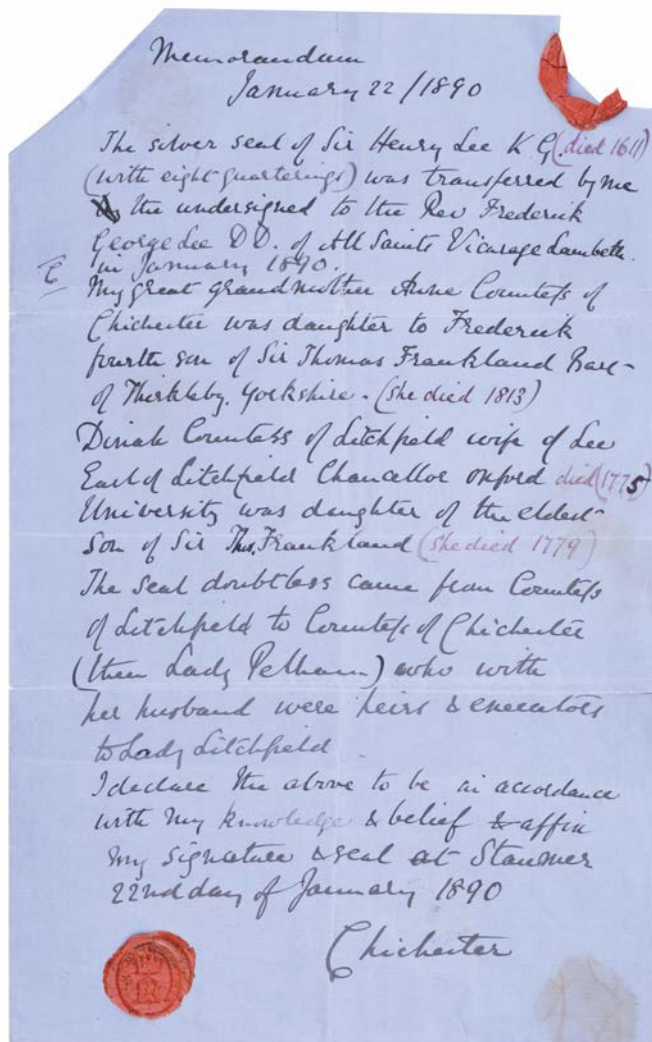 Memorandum
January 22/1890
The silver seal of Sir Henry Lee K G (died 1611)
(with eight quarterings) was transferred by me
the undersigned to the Rev Frederick
George Lee D.D. of All Saints Vicarage Lambeth.
in January 1890.
My great grandmother Anne Countess of
Chichester was daughter to Frederick
fourth son of Sir Thomas Frankland Bart
of Thirkleby, Yorkshire - (she died 1813)
Dinah Countess of Litchfield wife of Lee
Earl of Litchfield Chancellor Oxford died (1775)
University was daughter of the eldest
son of Sir Thos. Frankland (she died 1779)
The seal doubtless came from Countess
of Litchfield to Countess of Chichester
(then Lady Pelham) who with
her husband were heirs & executors
to Lady Litchfield
I declare the above to be in accordance
with my knowledge & belief & affix
my signature & seal at Stanmer
22nd day of January 1890
Chichester